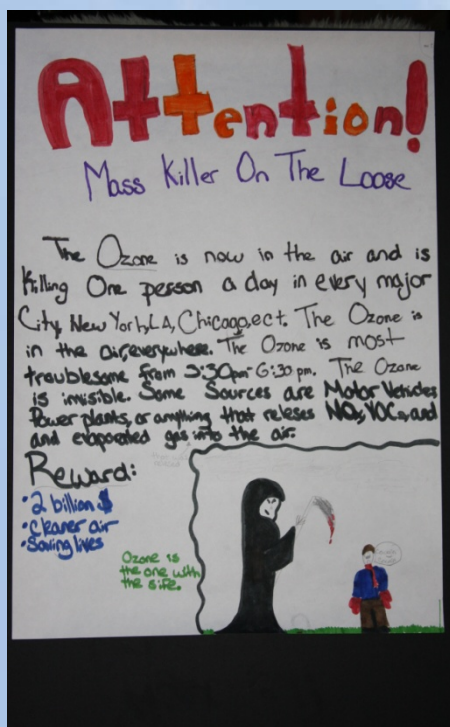 Attention!
Mass Killer On The Loose
The Ozone is now in the air and is
Killing One person a day in every major
City, New York, LA, Chicago, ect. The Ozone is
in the air, everywhere. The Ozone is most
troublesome from 3:30pm-6:30 pm. The Ozone
is invisible. Some Sources are Motor Vehicles,
Power plants, or anything that releses NOx, VOCs, and
and evaporated gas into the air.
Reward:
• 2 billion $
• Cleaner air
• Saving lives
Ozone is
the one with
the sife.